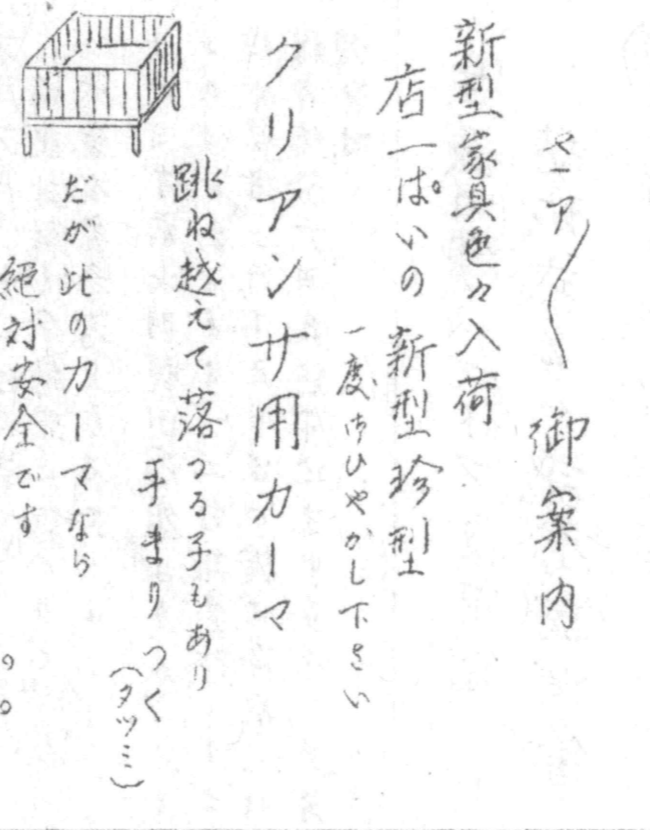 さーア〱 御案内
新型家具色々入荷
店一ぱいの新型珍型
一度御ひやかし下さい
クリアンサ用カーマ
跳ね越えて落つる子もあり
手まりつく
(タツミ)
だが此のカーマなら
絶対安全です